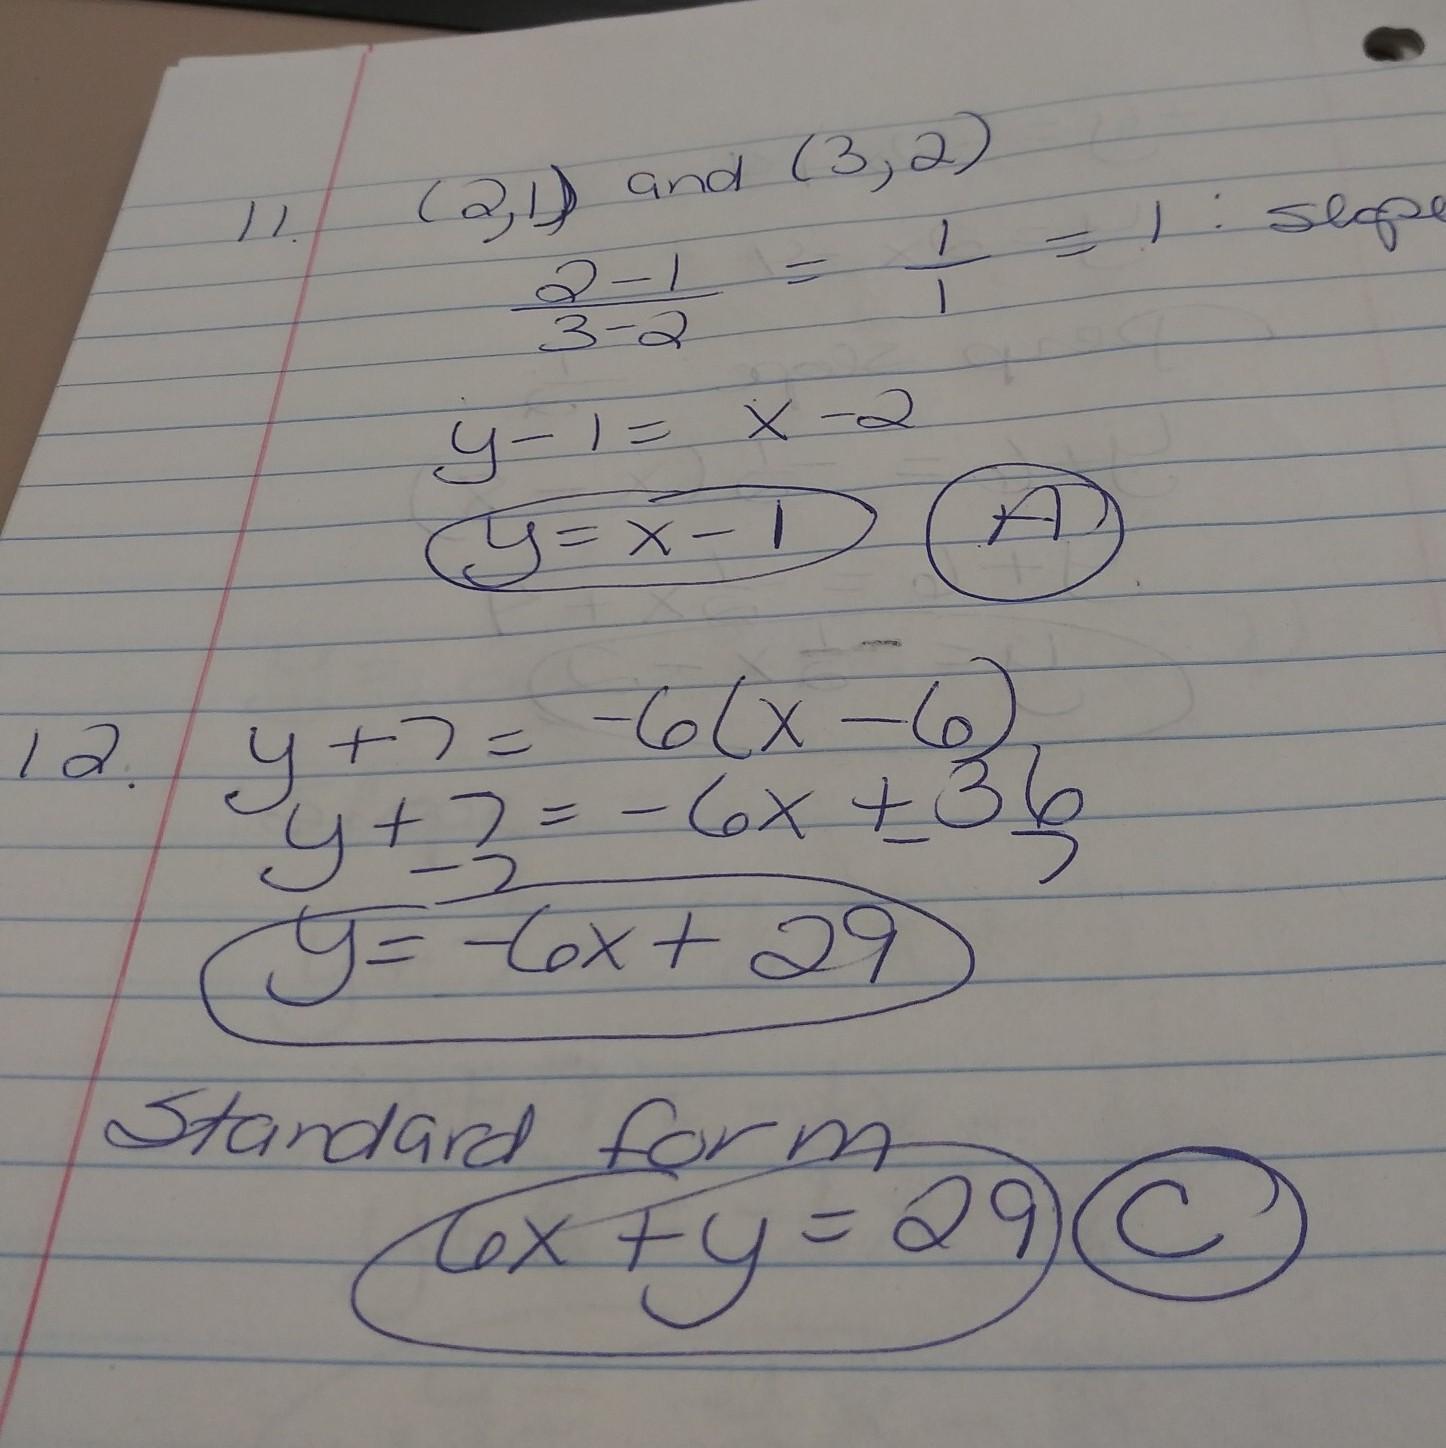 11. (2,1) and (3,2)
2-1/3-2 = 1/1 = 1 : slope
y-1 = x-2
y=x-1 A
12. y+7= -6(x-6)
y+7=-6x+36
-7 -7
y=-6x+29
Standard form
6x+y=29 C